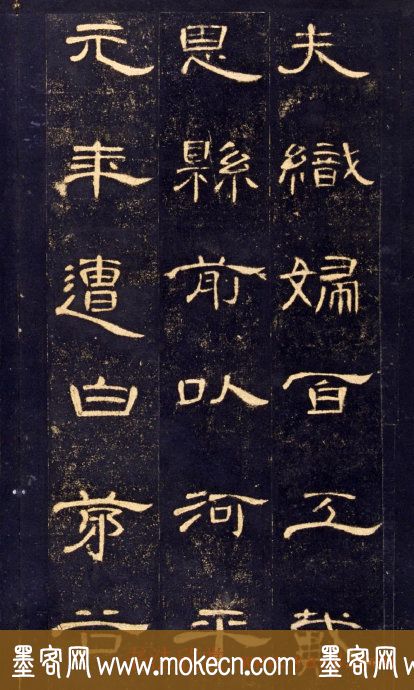 夫織婦百工戴
恩縣前以河平
元年遭白茅谷
墨客网www.mokecn.com墨客网